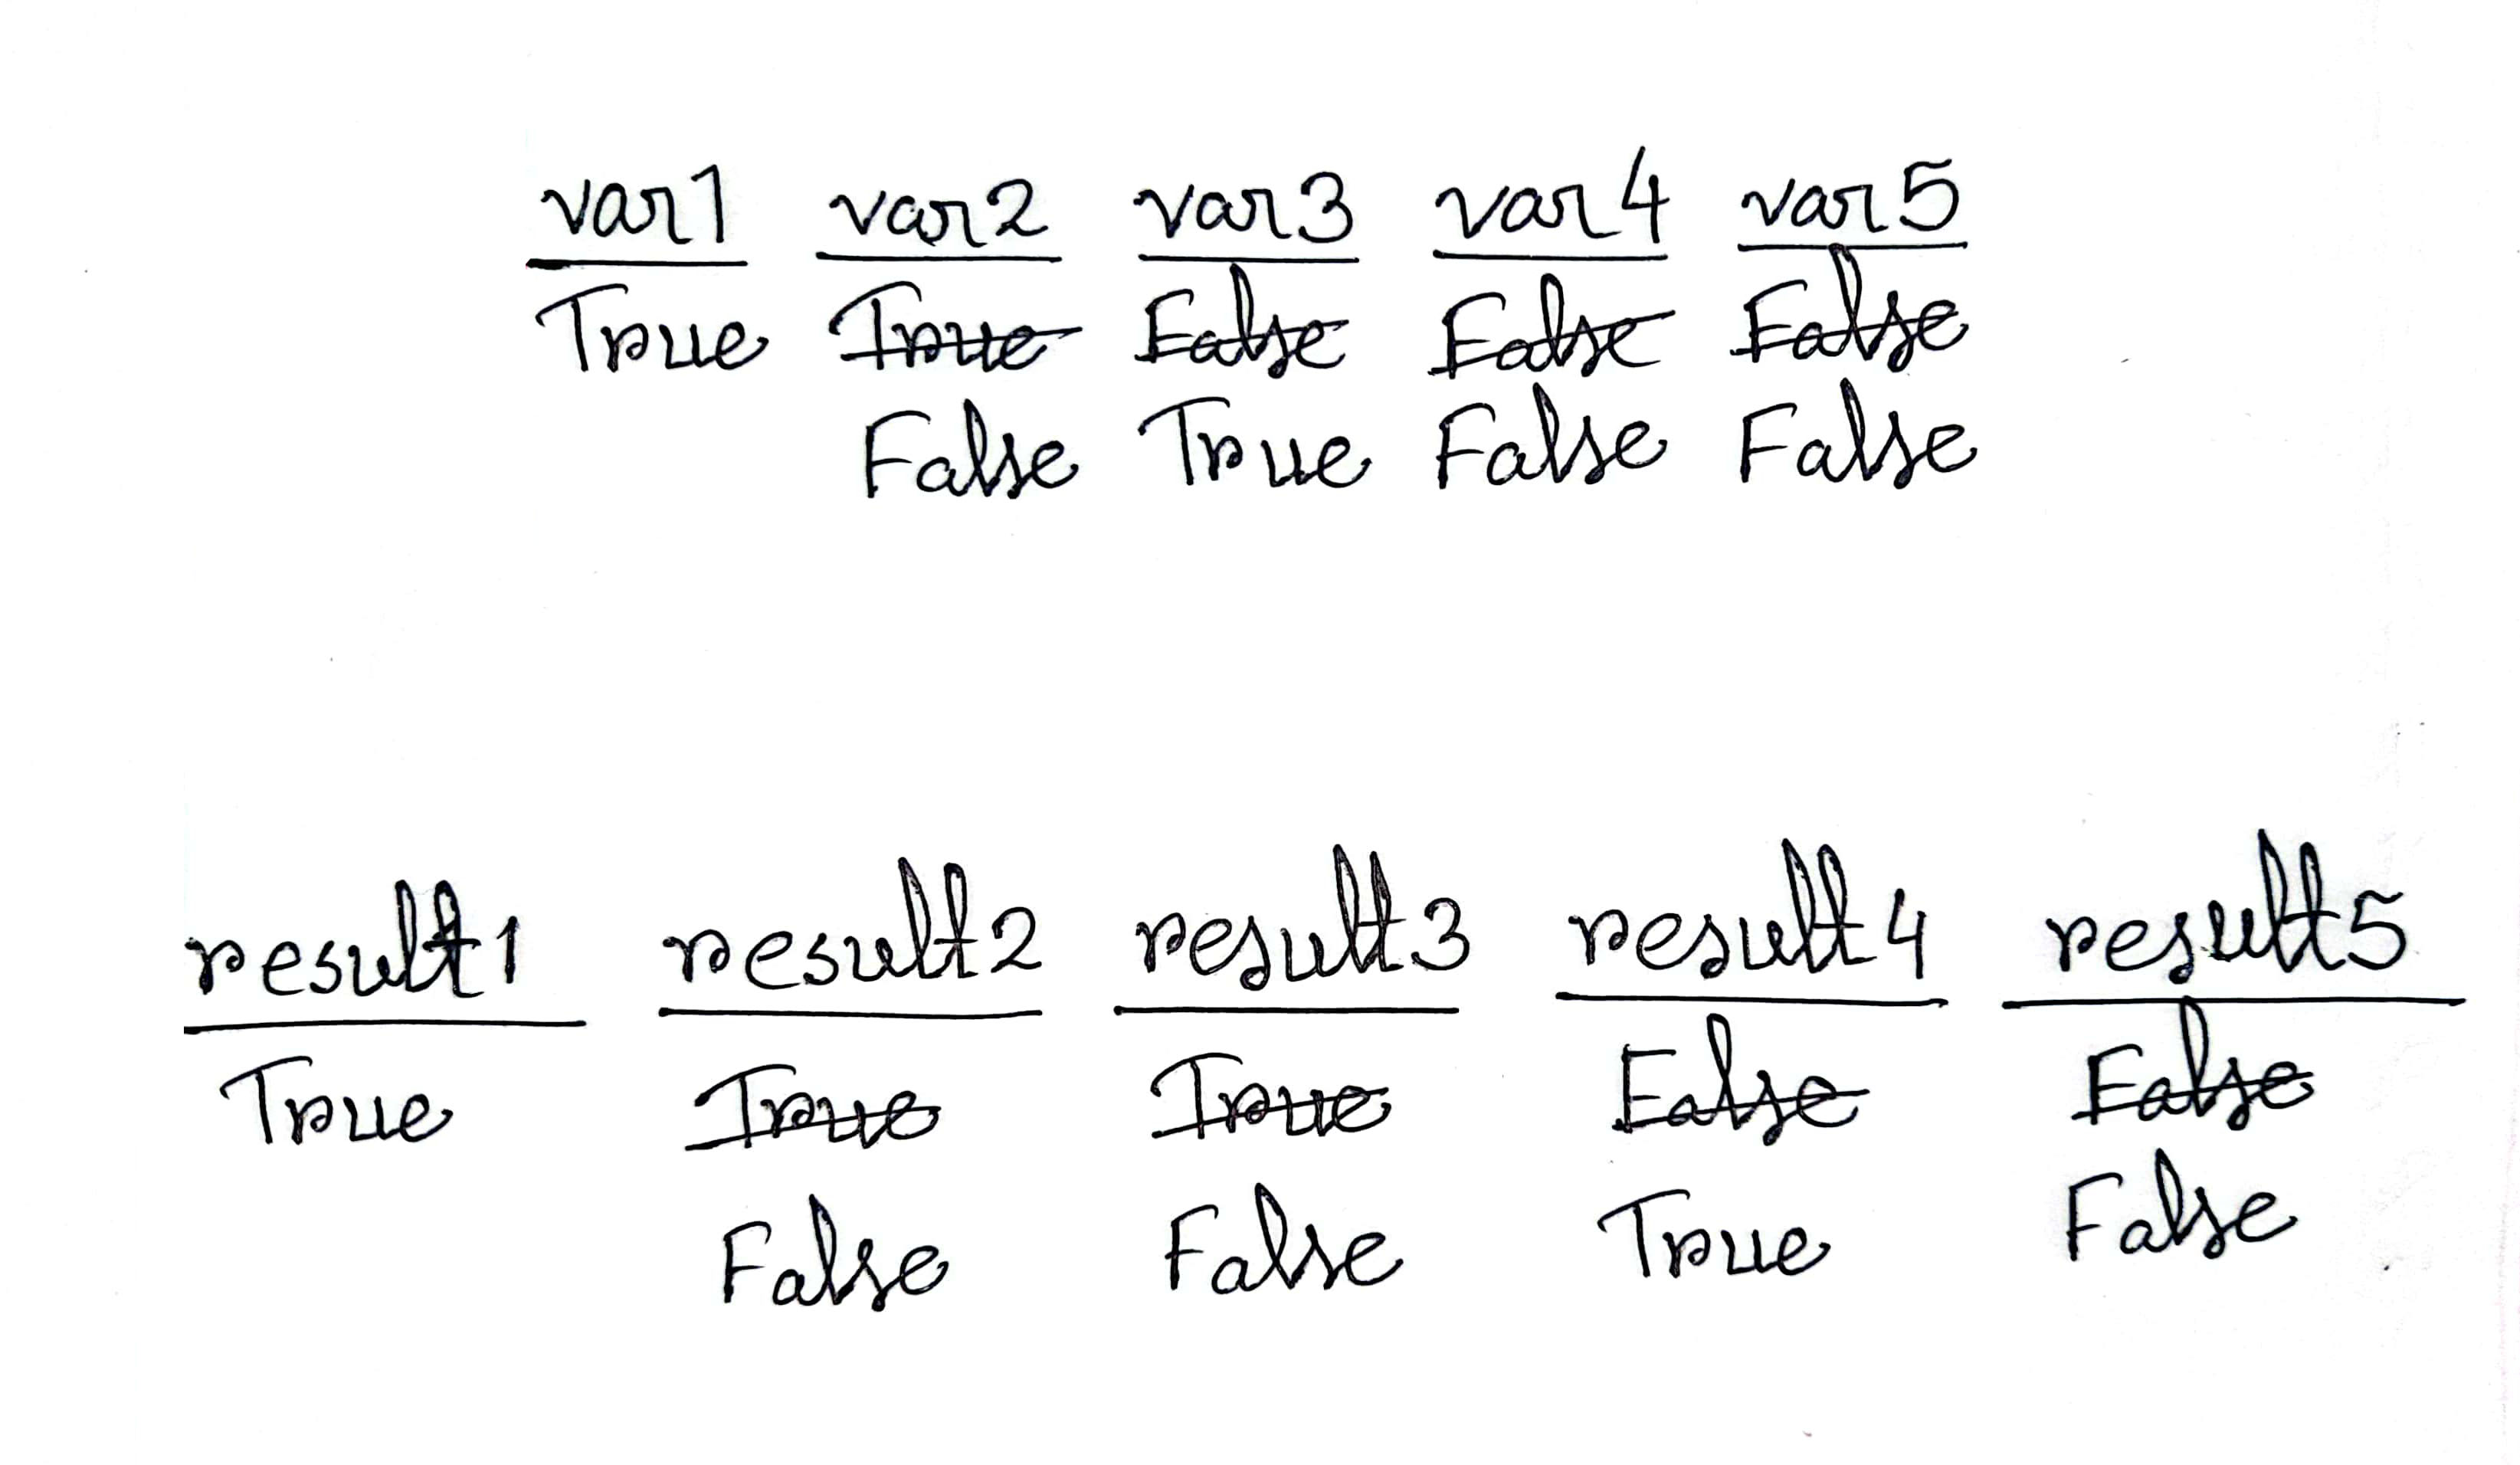 var1 var2 var3 var4 var5
True True False False False
False True False False
result1 result2 result3 result4 result5
True True True False False
False False True False